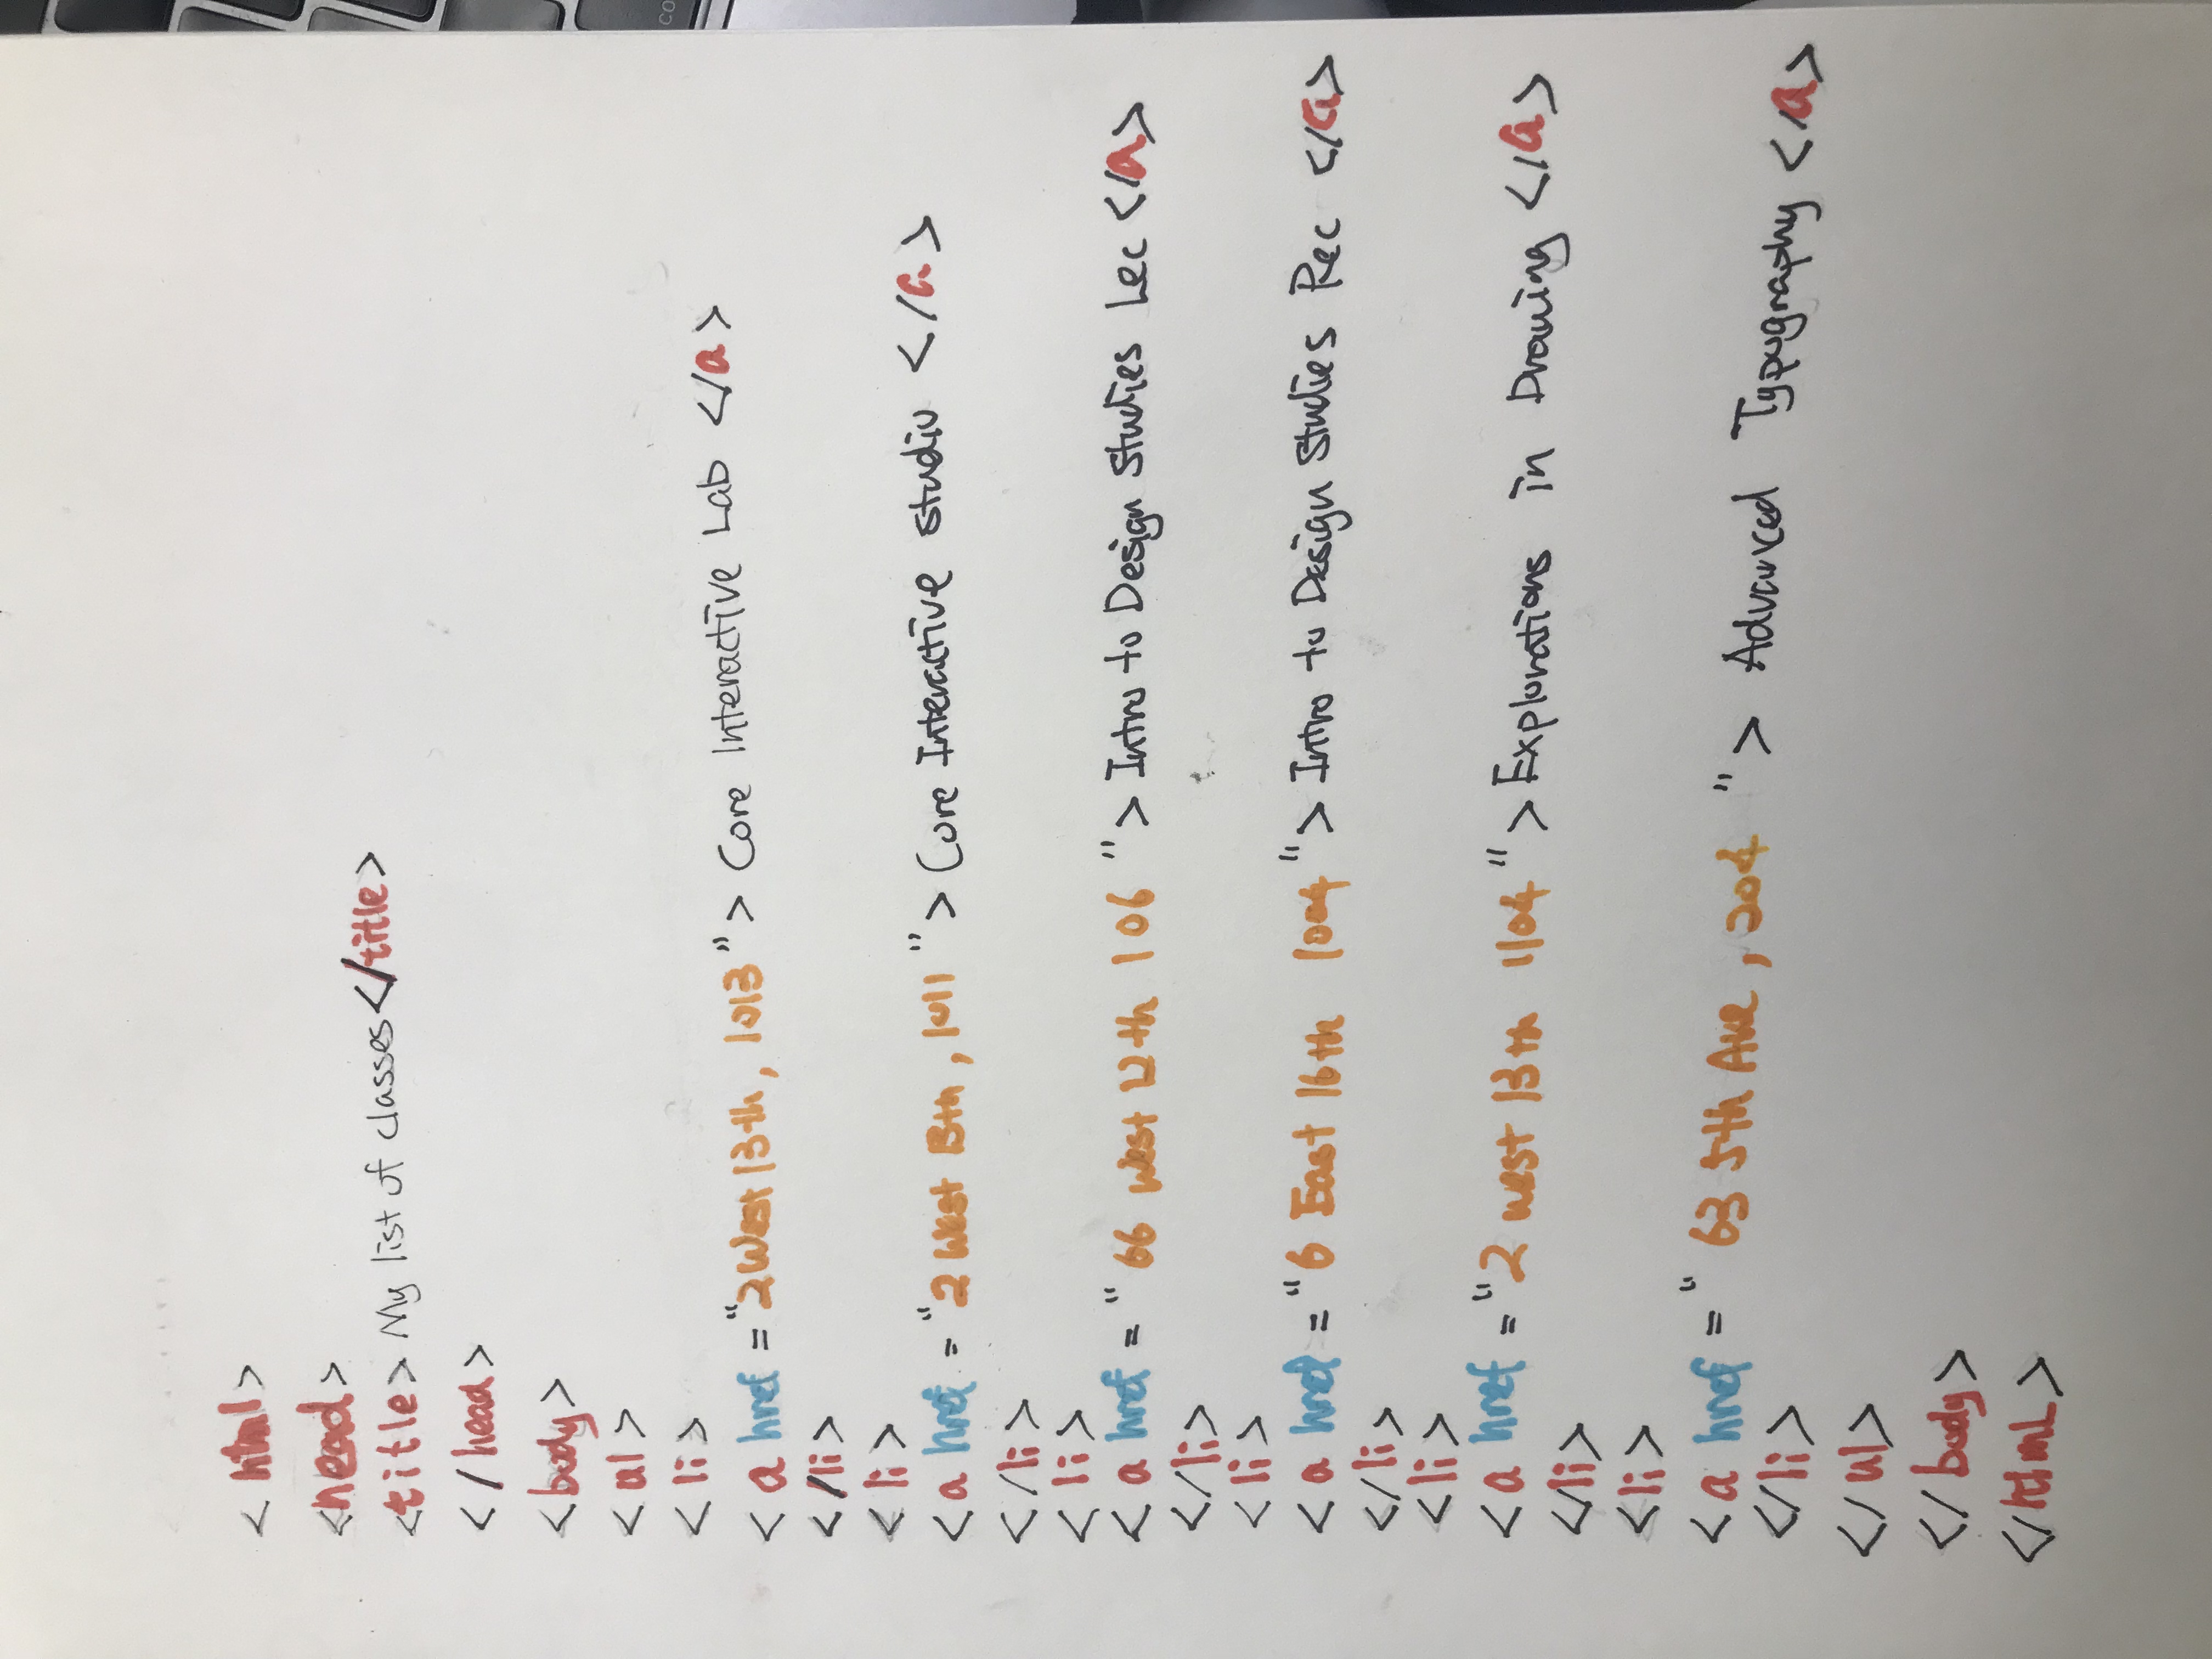 < html>
<head>
<title> My list of classes</title>
</head>
<body>
<ul>
<li>
<a href="2 West 13th, 1013"> Core Interactive Lab </a>
</li>
<li>
<a href="2 West 13th, 1011"> Core Interactive studio </a>
</li>
<li>
<a href="66 West 12th 106"> Intro to Design Studies Lec </a>
</li>
<li>
<a href="6 East 16th 1004"> Intro to Design Studies Rec </a>
</li>
<li>
<a href="2 west 13th 1104"> Explorations in Drawing </a>
</li>
<li>
<a href="63 5th Ave, 204"> Advanced Typography </a>
</li>
</ul>
</body>
</html>
co